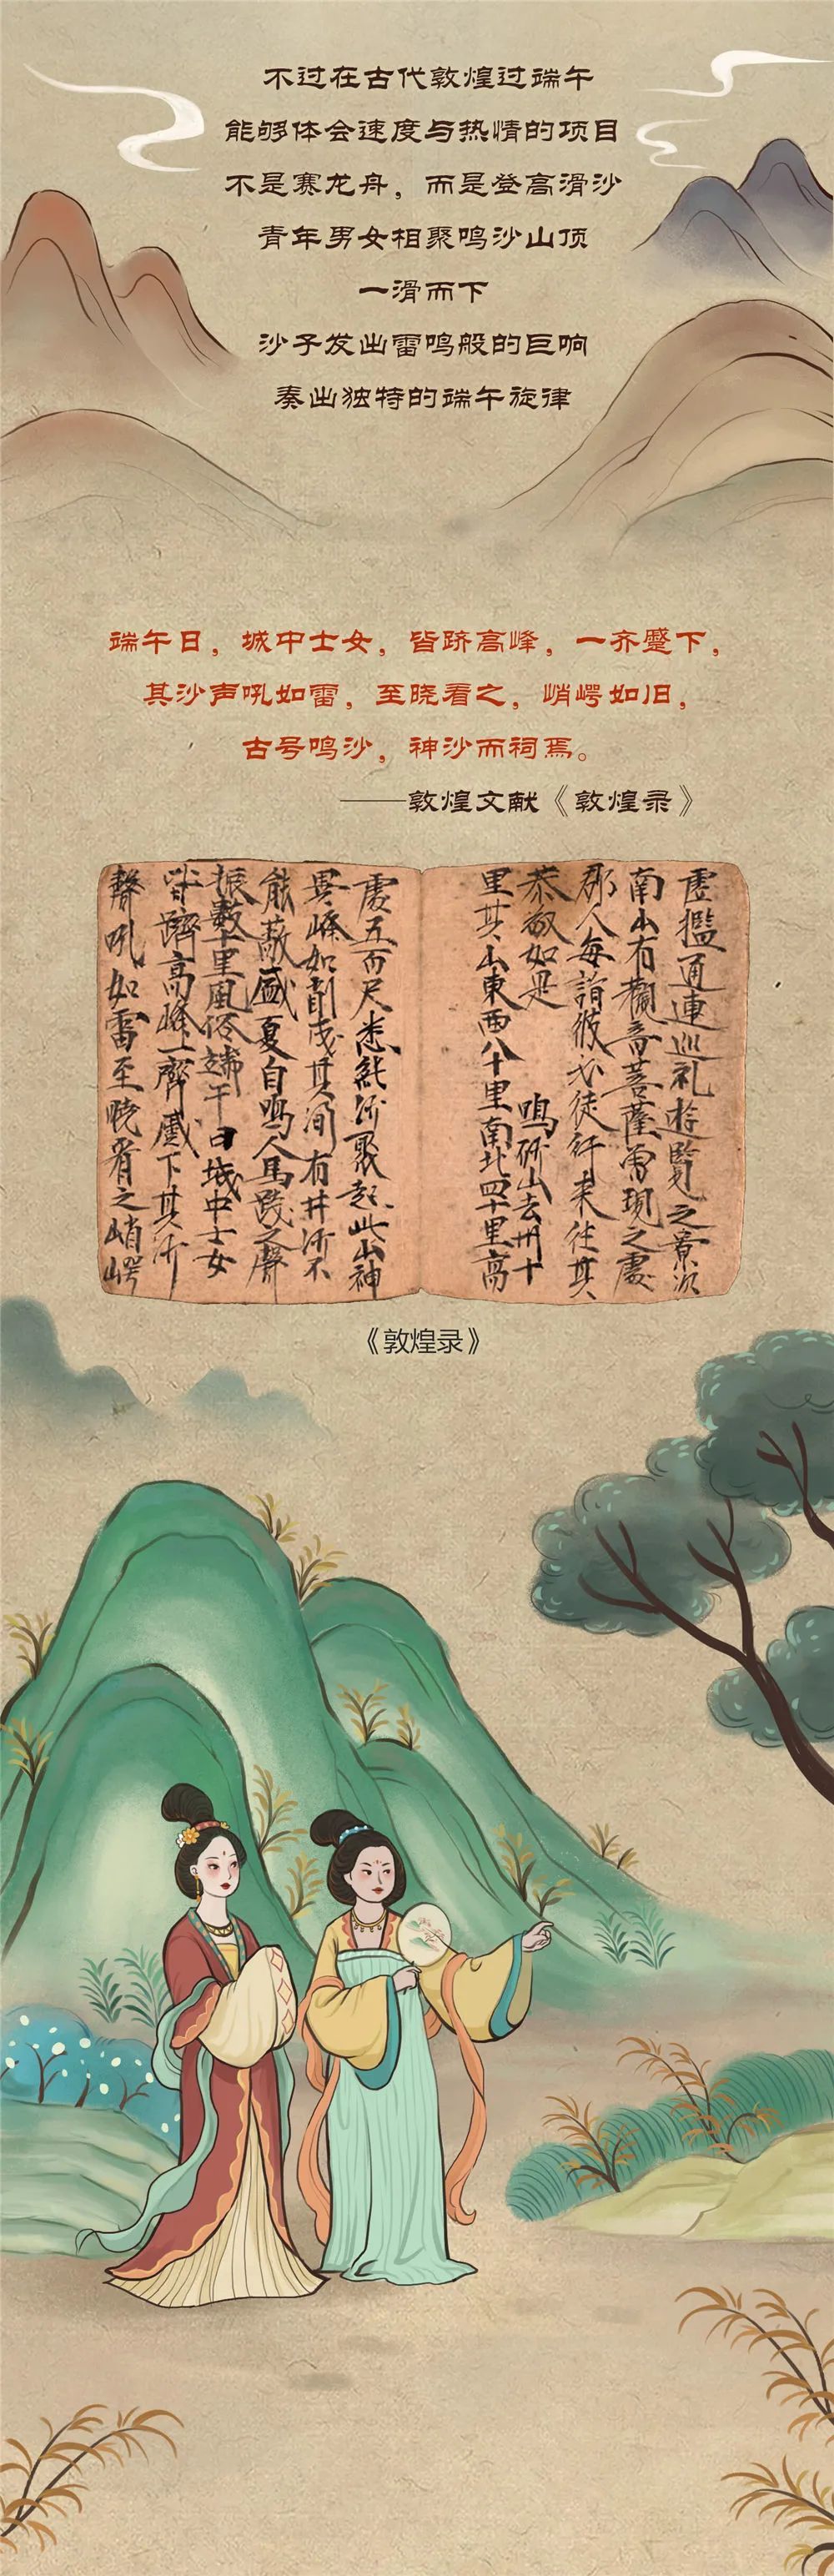 不过在古代敦煌过端午
能够体会速度与热情的项目
不是赛龙舟，而是登高滑沙
青年男女相聚鸣沙山顶
一滑而下
沙子发出雷鸣般的巨响
奏出独特的端午旋律
端午日，城中士女，皆跻高峰，一齐蹙下，
其沙声吼如雷，至晓看之，峭崿如旧，
古号鸣沙，神沙而祠焉。
——敦煌文献《敦煌录》
虚槛通连巡礼游覧之景次
南山有觀音菩薩曾現之處
郡人每詣彼必徒行来往其
恭敬如是
鳴沙山去州十
里其山東西八十里南北四十里高
處五百尺悉純沙聚起此山神
異峰如削成其間有井沙不
能蔽盛夏自鳴人馬践之聲
振數十里風俗端午日城中士女
皆躋高峰一齊蹙下其沙
聲吼如雷至晓看之峭崿
《敦煌录》